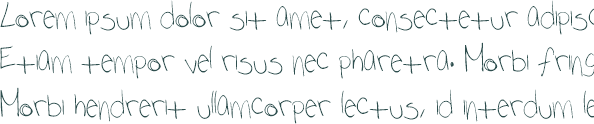 Lorem ipsum dolor sit amet, consectetur adipisc
Etiam tempor vel risus nec pharetra. Morbi fring
Morbi hendrerit ullamcorper lectus, id interdum le